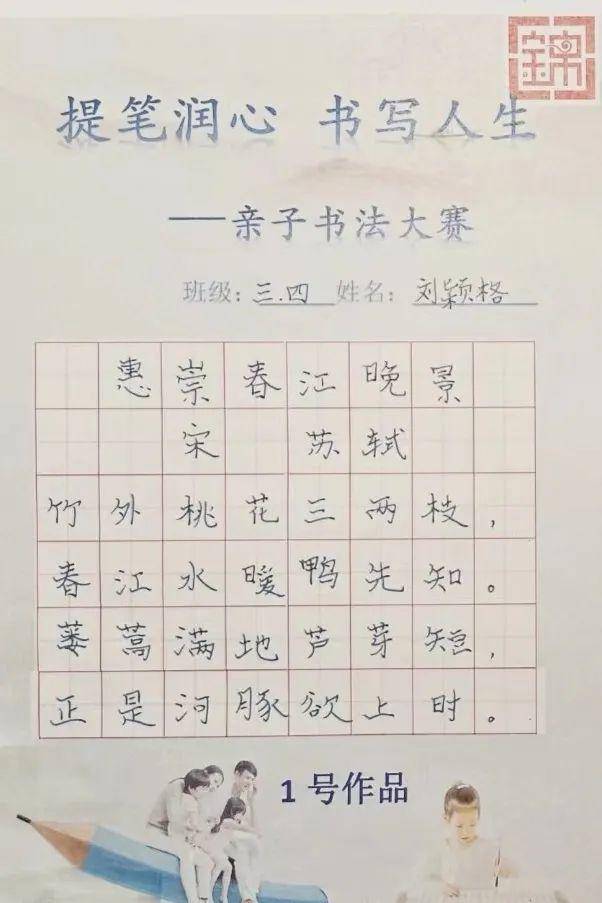 錦
提笔润心 书写人生
——亲子书法大赛
班级: 三.四 姓名: 刘颖格
惠崇春江晚景
宋 苏轼
竹外桃花三两枝，
春江水暖鸭先知。
蒌蒿满地芦芽短，
正是河豚欲上时。
1号作品